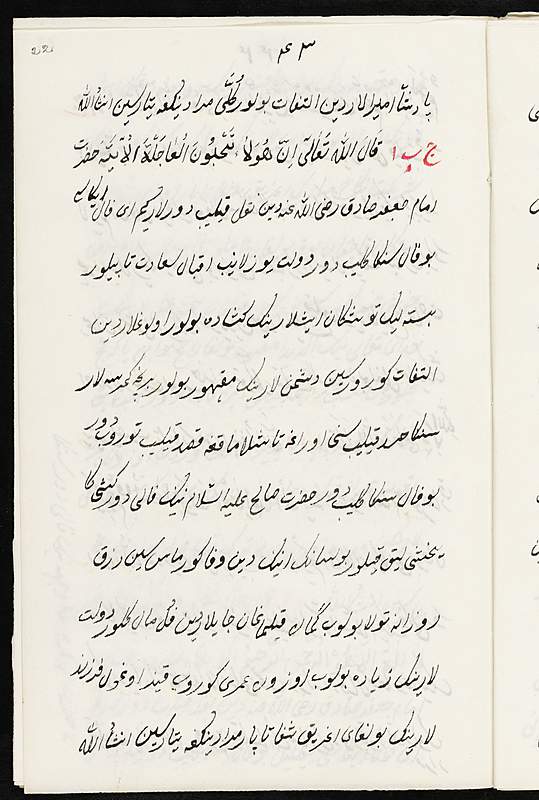 ۴۳
پادشاه امیرلاردین التفات بولور کُلّی مرادینکغه یتارسین انشاءالله
ج ب ا قَالَ اللهُ تَعَالَی اِنَّ هٰٓؤُلَاءِ تُحِبُّونَ الْعَاجِلَةَ الْآیَة حضرت
امام جعفر صادق رضی الله عنه دین نقل قیلیب دورلارکیم ای فال
بوفال سنکا کلیب دور دولت یوزلانیب اقبال سعادت تاپیلور
بسته لیک توشکان ایشلارینک کشاده بولور اولوغلاردین
التفات کورورسین دشمن لارینک مقهور بولور برچه کمرسه لار
سنکا حسد قیلیب سنی اوراغه تاشلاماقغه قصد قیلیب توروب دور
بوفال سنکا کلیب دور حضرت صالح علیه السلام نینک فالی دور کیشی کا
یخشی لیق قیلور بولسانک انینک دین وفا کورماس سین رزق
روزانه تولا بولوب کمان قیلماغان جایلاردین فکل مال کلور دولت
لارینک زیاده بولوب اوزون عمری کوروب قیز اوغول فرزند
لارینک بولغای اغریق شفا تاپار مرادینکغه یتارسین انشاءالله